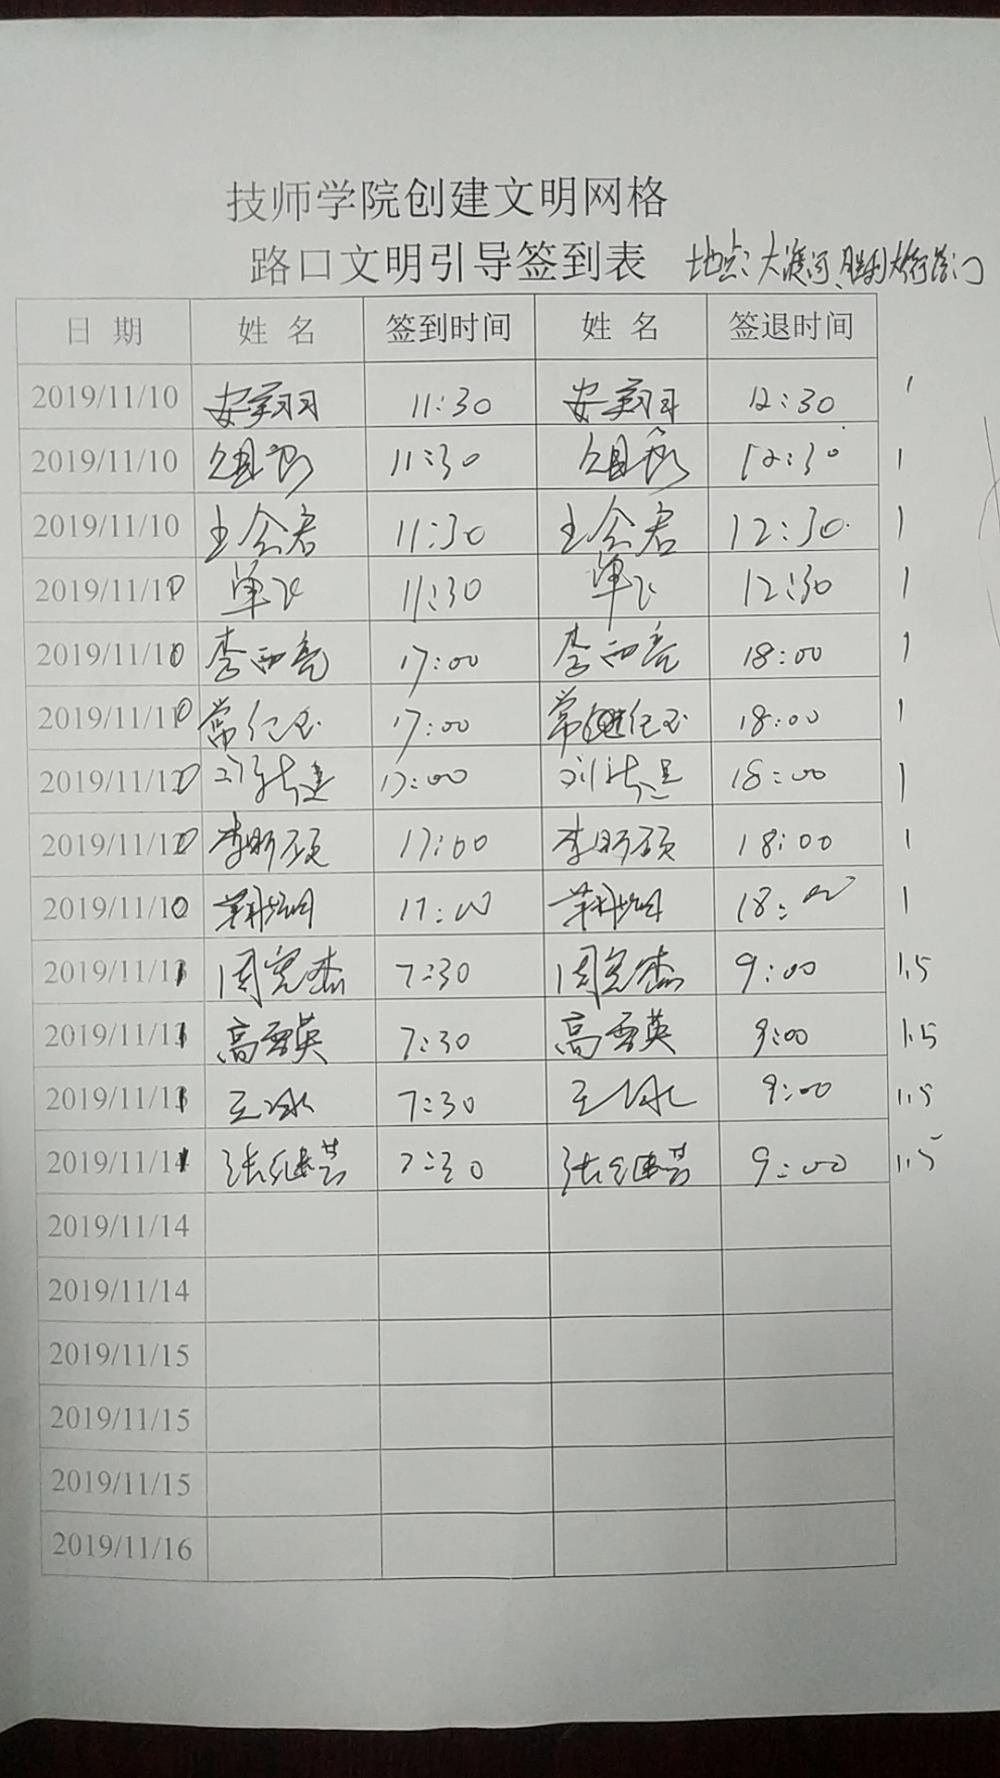 技师学院创建文明网格
路口文明引导签到表 地点:大渡河、胜利大街
日 期 姓 名 签到时间 姓 名 签退时间
2019/11/10 安翔羽 11:30 安翔羽 12:30 1
2019/11/10 11:30 12:30 1
2019/11/10 王会君 11:30 王会君 12:30 1
2019/11/10 单飞 11:30 单飞 12:30 1
2019/11/10 李西亮 17:00 李西亮 18:00 1
2019/11/10 常仁玉 17:00 常仁玉 18:00 1
2019/11/10 17:00 18:00 1
2019/11/10 李昕硕 17:00 李昕硕 18:00 1
2019/11/10 17:00 18:00 1
2019/11/11 周宪杰 7:30 周宪杰 9:00 1.5
2019/11/11 高雪英 7:30 高雪英 9:00 1.5
2019/11/11 王冰 7:30 王冰 9:00 1.5
2019/11/11 张继芸 7:30 张继芸 9:00 1.5
2019/11/14
2019/11/14
2019/11/15
2019/11/15
2019/11/15
2019/11/16